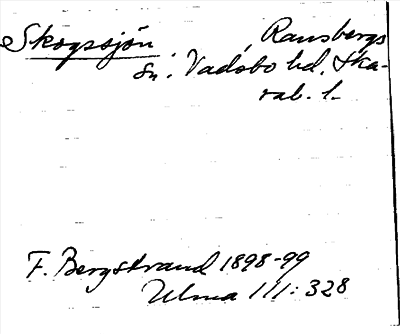 Skogssjön, Ransbergs
sn. Vadsbo hd. Ska-
rab. l.
F. Bergstrand 1898-99
Ulma 111:328